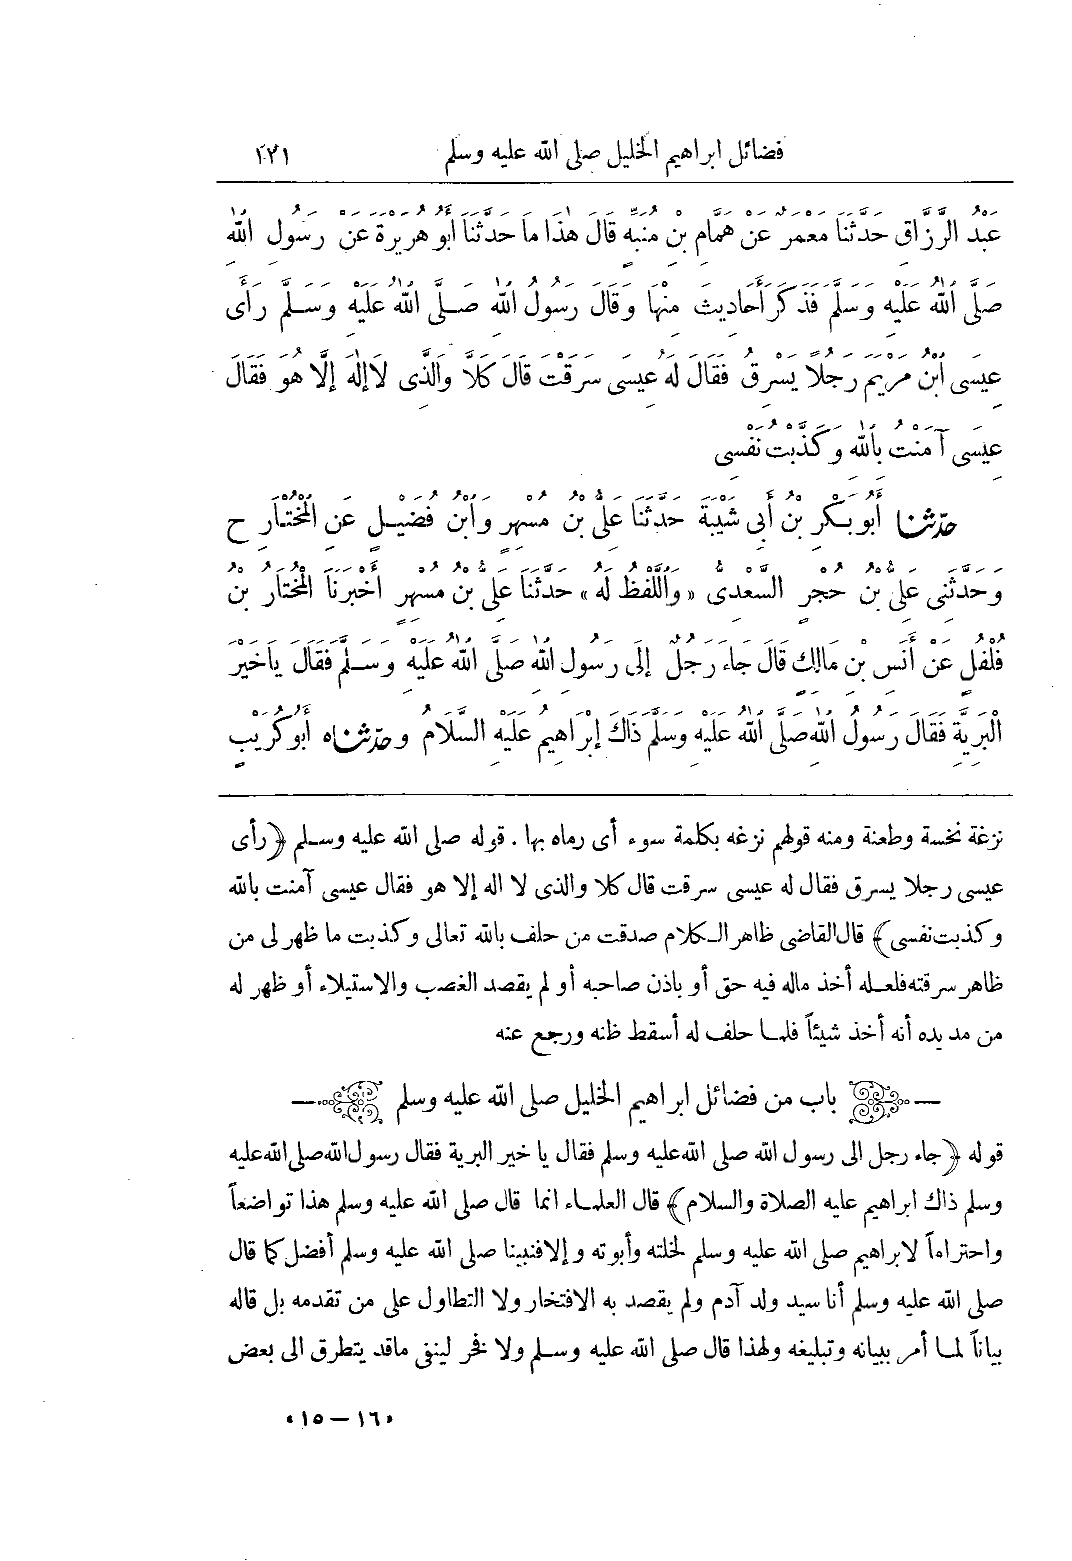 فضائل ابراهيم الخليل صلى الله عليه وسلم ١٢١
عَبْدُ الرَّزَّاقِ حَدَّثَنَا مَعْمَرٌ عَنْ هَمَّامِ بْنِ مُنَبِّهٍ قَالَ هٰذَا مَا حَدَّثَنَا أَبُو هُرَيْرَةَ عَنْ رَسُولِ اللهِ
صَلَّى اللهُ عَلَيْهِ وَسَلَّمَ فَذَكَرَ أَحَادِيثَ مِنْهَا وَقَالَ رَسُولُ اللهِ صَلَّى اللهُ عَلَيْهِ وَسَلَّمَ رَأَى
عِيسَى ابْنُ مَرْيَمَ رَجُلًا يَسْرِقُ فَقَالَ لَهُ عِيسَى سَرَقْتَ قَالَ كَلَّا وَالَّذِى لَا إِلٰهَ إِلَّا هُوَ فَقَالَ
عِيسَى آمَنْتُ بِاللهِ وَكَذَّبْتُ نَفْسِى
حدّثنا أَبُو بَكْرِ بْنُ أَبِى شَيْبَةَ حَدَّثَنَا عَلِىُّ بْنُ مُسْهِرٍ وَابْنُ فُضَيْلٍ عَنِ الْمُخْتَارِ ح
وَحَدَّثَنِى عَلِىُّ بْنُ حُجْرٍ السَّعْدِىُّ «وَاللَّفْظُ لَهُ» حَدَّثَنَا عَلِىُّ بْنُ مُسْهِرٍ أَخْبَرَنَا الْمُخْتَارُ بْنُ
فُلْفُلٍ عَنْ أَنَسِ بْنِ مَالِكٍ قَالَ جَاءَ رَجُلٌ إِلَى رَسُولِ اللهِ صَلَّى اللهُ عَلَيْهِ وَسَلَّمَ فَقَالَ يَا خَيْرَ
الْبَرِيَّةِ فَقَالَ رَسُولُ اللهِ صَلَّى اللهُ عَلَيْهِ وَسَلَّمَ ذَاكَ إِبْرَاهِيمُ عَلَيْهِ السَّلَامُ وحدّثناه أَبُو كُرَيْبٍ
نزغة نخسة وطعنة ومنه قولهم نزغه بكلمة سوء أى رماه بها . قوله صلى الله عليه وسلم ﴿رأى
عيسى رجلا يسرق فقال له عيسى سرقت قال كلا والذى لا اله إلا هو فقال عيسى آمنت بالله
وكذبت نفسى﴾ قال القاضى ظاهر الكلام صدقت من حلف بالله تعالى وكذبت ما ظهر لى من
ظاهر سرقته فلعله أخذ ماله فيه حق أو باذن صاحبه أو لم يقصد الغصب والاستيلاء أو ظهر له
من مد يده أنه أخذ شيئاً فلما حلف له أسقط ظنه ورجع عنه
باب من فضائل ابراهيم الخليل صلى الله عليه وسلم
قوله ﴿جاء رجل الى رسول الله صلى الله عليه وسلم فقال يا خير البرية فقال رسول الله صلى الله عليه
وسلم ذاك ابراهيم عليه الصلاة والسلام﴾ قال العلماء انما قال صلى الله عليه وسلم هذا تواضعاً
واحتراماً لابراهيم صلى الله عليه وسلم لخلته وأبوته وإلا فنبينا صلى الله عليه وسلم أفضل كما قال
صلى الله عليه وسلم أنا سيد ولد آدم ولم يقصد به الافتخار ولا التطاول على من تقدمه بل قاله
بياناً لما أمر ببيانه وتبليغه ولهذا قال صلى الله عليه وسلم ولا فخر لينفى ماقد يتطرق الى بعض
«١٦ — ١٥»